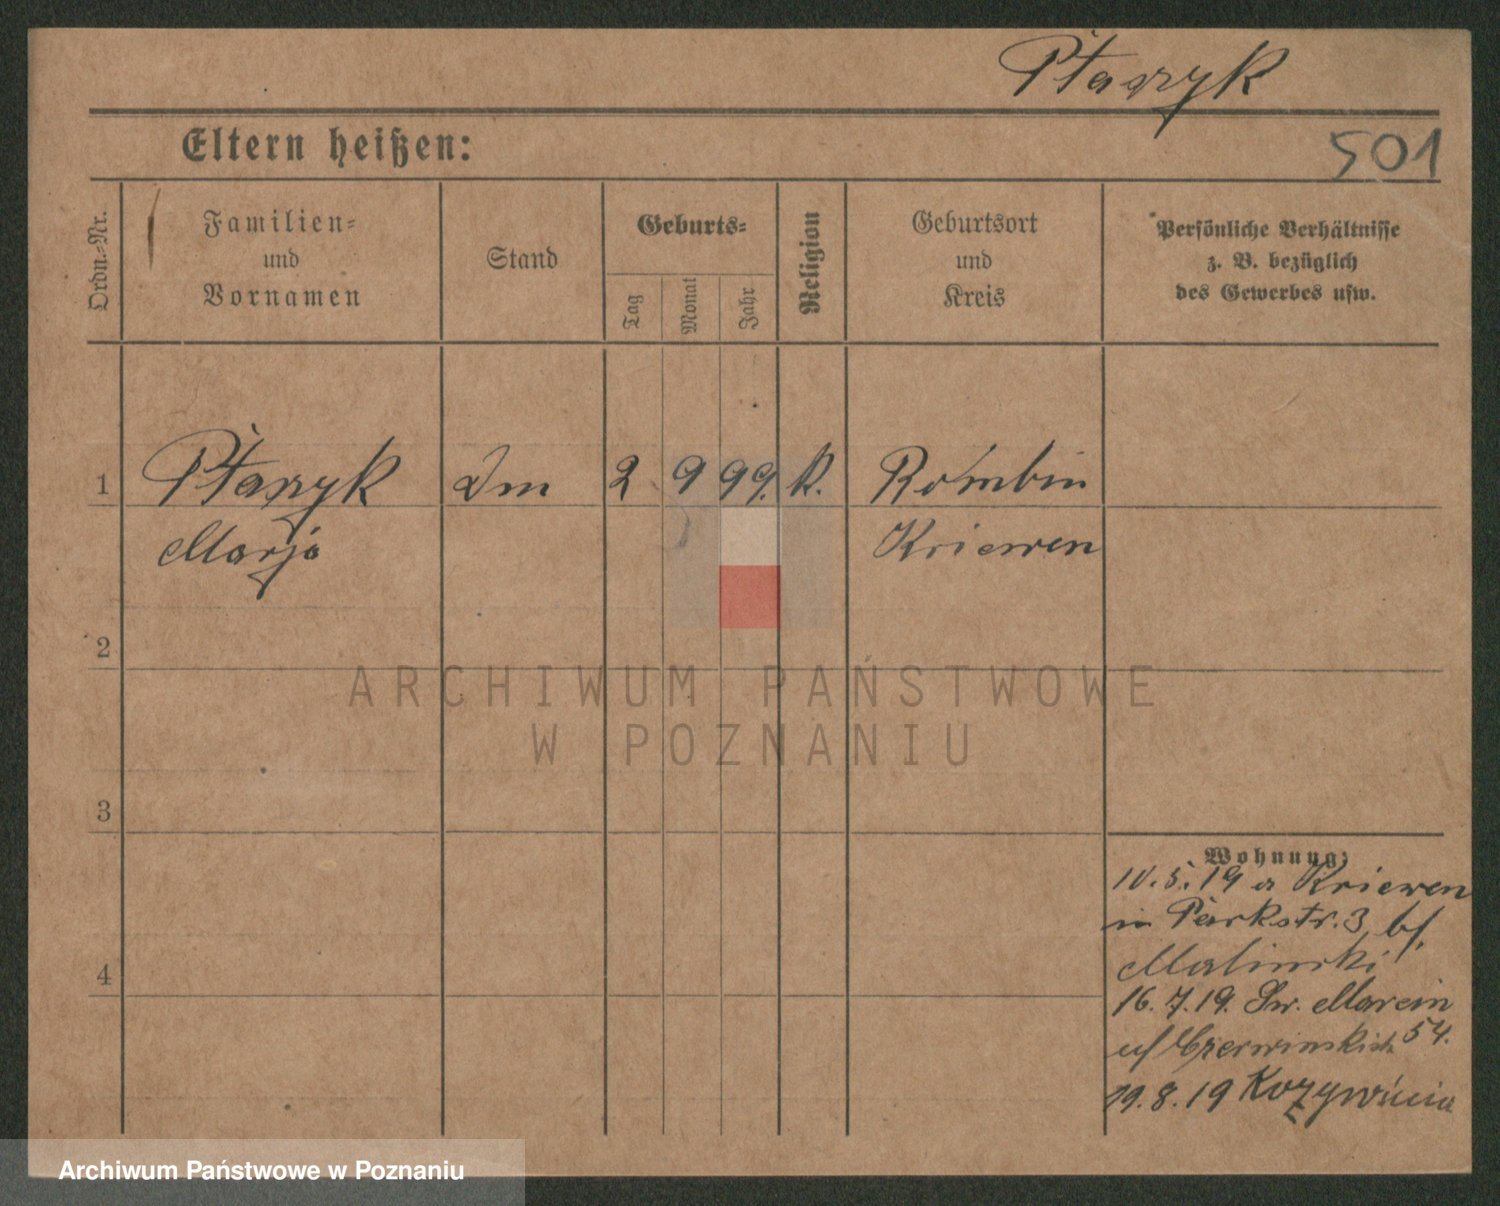 Ptaszyk
Eltern heißen:
501
Ordn.-Nr.
Familien-
und
Vornamen
Stand
Geburts-
Tag
Monat
Jahr
Religion
Geburtsort
und
Kreis
Persönliche Verhältnisse
z. B. bezüglich
des Gewerbes usw.
1 Ptaszyk 2 9 99. k. Rombin
Marja Kriewen
2
3
4
Wohnung:
10.5.19 a Kriewen
in Parkstr. 3 b/.
Malinski
16.7.19. Św. Marcin
54.
19.8.19
ARCHIWUM PAŃSTWOWE
W POZNANIU
Archiwum Państwowe w Poznaniu